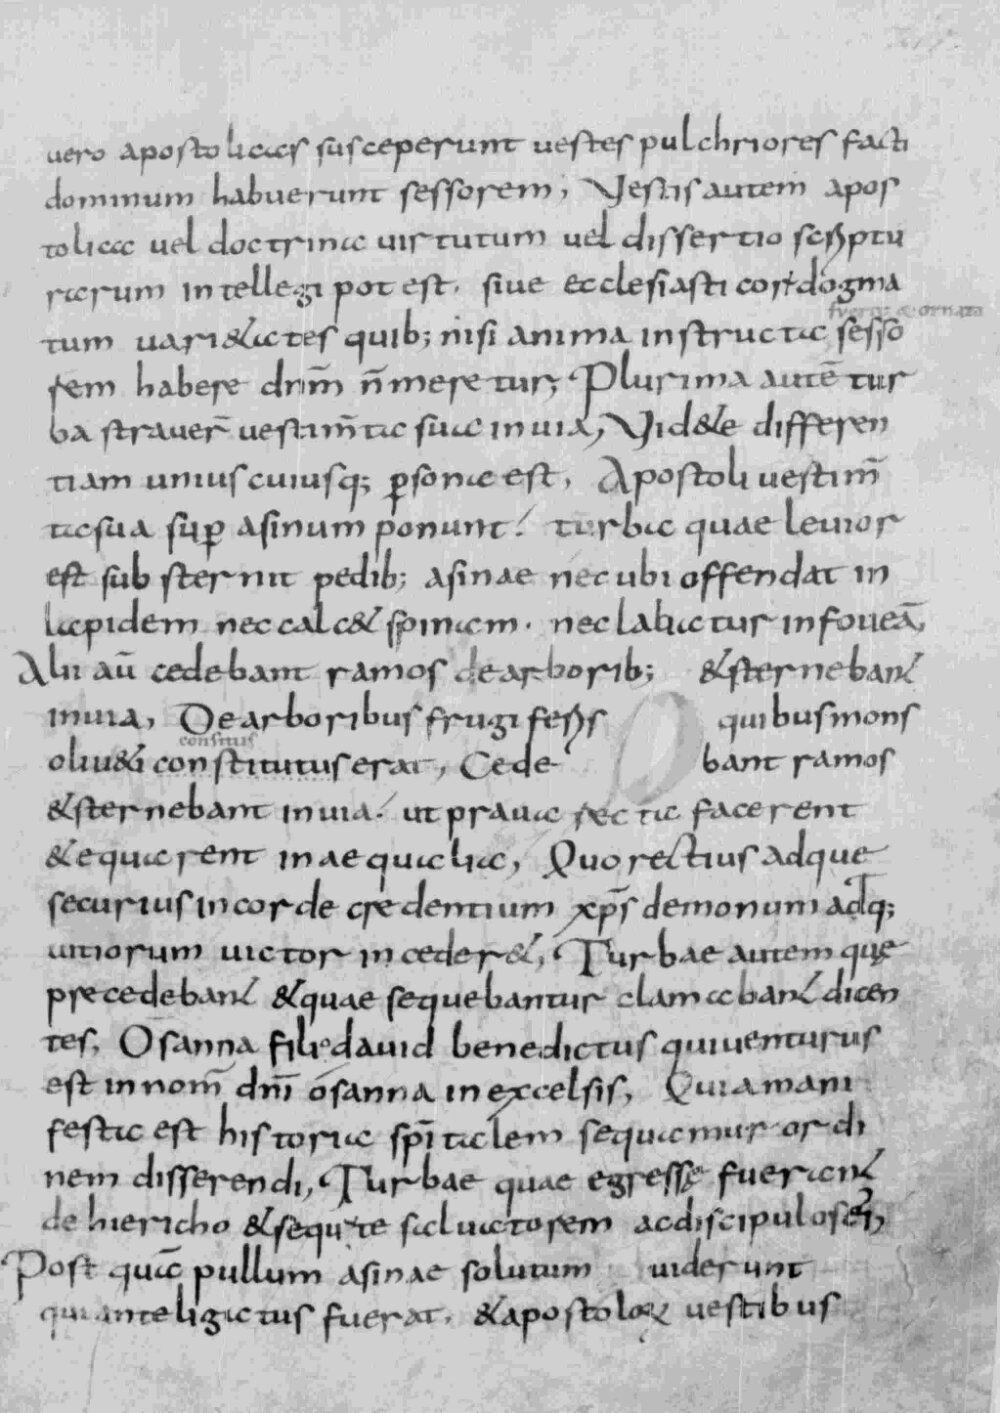 uero apostolicas susceperunt uestes pulchriores facti
dominum habuerunt sessorem; Vestis autem apos
tolica uel doctrina uirtutum uel dissertio scriptu
rarum intellegi potest. siue ecclesiasticor dogma
fuerit & ornata
tum uari&ates quib; nisi anima instructa sesso
rem habere dnm̄ n̄ meretur; Plurima autē tur
ba strauer̄ uestim̄ta sua in uia, Vid&e differen
tiam uniuscuiusq; p̱sonae est, Apostoli uestim̄
ta sua sup̱ asinum ponunt! turba quae leuior
est sub sternit pedib; asinae nec ubi offendat in
lapidem nec calc& spinam. nec labatur in foueā,
Alii aū cedebant ramos de arborib; & sternebant
in uia, De arboribus frugiferis quibus mons
consitus
oliu&i constitutus erat, Cede bant ramos
& sternebant in uia! ut praua recta facerent
& equarent inaequalia, Quo rectius adque
securius in corde credentium xp̄s demonum adq;
uitiorum uictor inceder&, Turbae autem quę
precedebant & quae sequebantur clamabant dicen
tes, Osanna filio dauid benedictus qui uenturus
est in nom̄ dnī osanna in excelsis, Quia mani
festa est historia sp̄italem sequamur ordi
nem disserendi, Turbae quae egressę fuerant
de hiericho & sequte saluatorem ac discipulos ei,
Post quā pullum asinae solutum uiderunt
qui ante ligatus fuerat, & apostoloꝝ uestibus